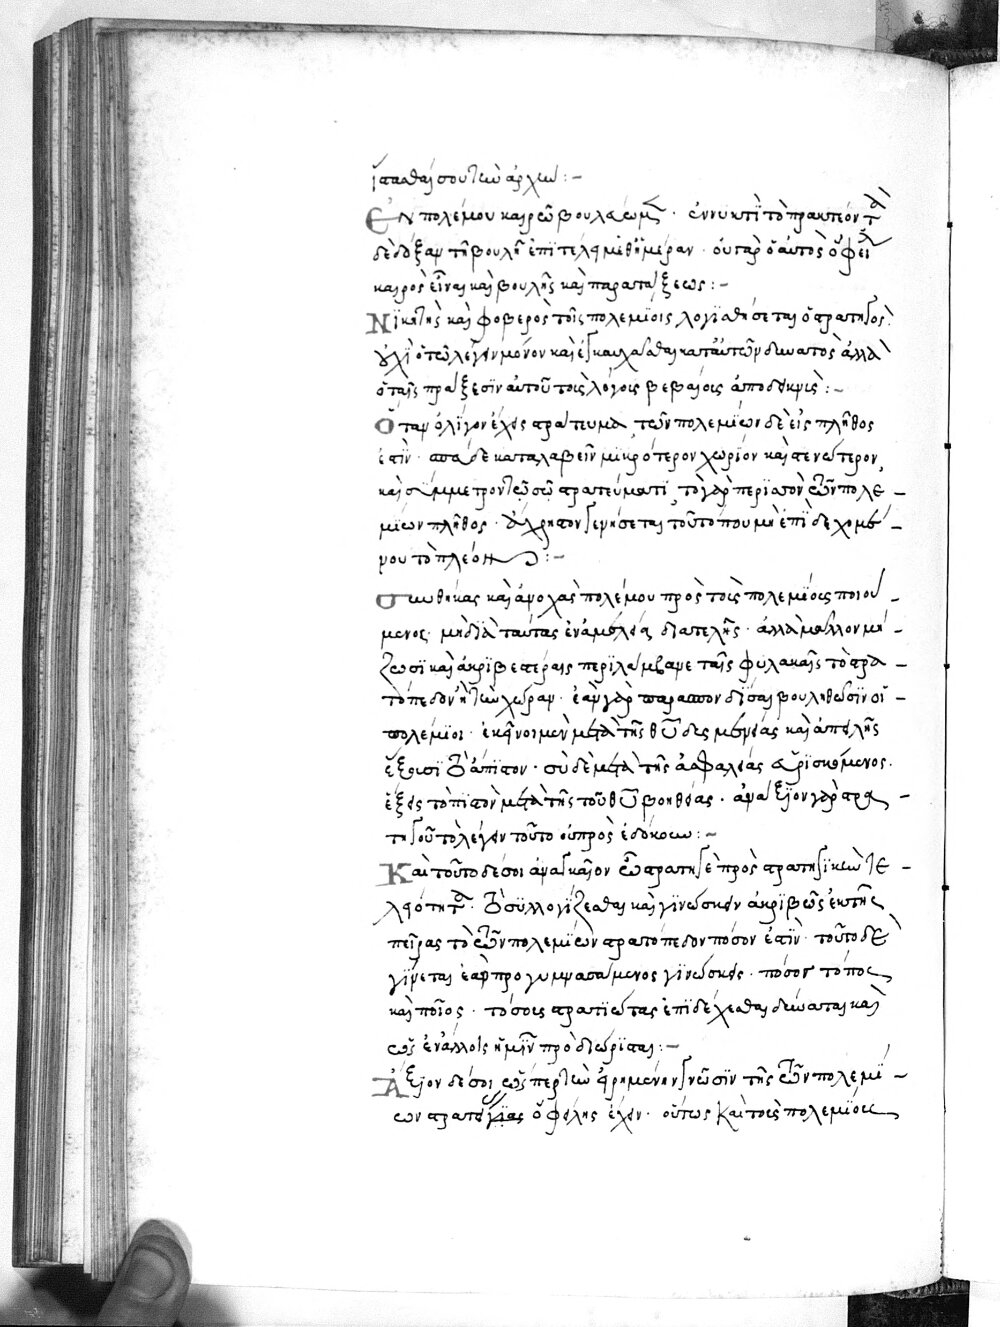 ἵστασθαί σου τὴν ἀρχήν :-
Ἐν πολέμου καιρῶ βουλεύωμεν· ἐν νυκτὶ τὸ πρακτέον· τὰ
δὲ δόξαντα τῆ βουλῆ ἐπιτέλει μεθημέραν· οὐ γὰρ ὁ αὐτὸς ὀφείλει
καιρὸς εἶναι καὶ βουλῆς καὶ παρατάξεως :-
Νικητὴς καὶ φοβερὸς τοῖς πολεμίοις λογισθήσεται ὁ στρατηγὸς·
οὐχὶ ὁ τῶ λέγειν μόνον καὶ ἐγκαυχᾶσθαι κατ' αὐτῶν δυνατὸς ἀλλὰ
ὁ ταῖς πράξεσιν αὐτοῦ τοὺς λόγους βεβαίους ἀποδεικνὺς :-
Ὅταν ὀλίγον ἔχεις στράτευμα, τῶν πολεμίων δὲ εἰς πλῆθος
ἐστὶν· σπεῦδε καταλαβεῖν μικρότερον χωρίον καὶ στενώτερον,
καὶ σύμμετρον τῶ σῶ στρατεύματι, τὸ γὰρ περισσὸν τῶν πολε-
μίων πλῆθος· ἄχρηστον γενήσεται τοῦ τόπου μὴ ἐπιδεχομέ-
νου τὸ πλέον :-
Συνθήκας καὶ ἀνοχὰς πολέμου πρὸς τοὺς πολεμίους ποιού-
μενος· μὴ διὰ ταύτας ἐν ἀμελεία διατελῆς· ἀλλὰ μᾶλλον μεί-
ζωσι καὶ ἀκριβεστέραις περιλάμβανε ταῖς φυλακαῖς τὸ στρα-
τόπεδον ἢ τὴν χώραν· ἐὰν γὰρ παρασπονδῆσαι βουληθῶσιν οἱ
πολέμιοι· ἐκεῖνοι μὲν μετὰ τῆς θυ δυσμενείας καὶ ἀπειλῆς
ἕξουσι τὸ ἄπιστον· σὺ δὲ μετὰ τῆς ἀσφαλείας εὑρισκόμενος.
ἕξεις τὸ πιστὸν μετὰ τῆς τοῦ θυ βοηθείας· ἀνάξιον γὰρ στρα-
τηγοῦ τὸ λέγειν τοῦτο οὐ προσεδόκουν :-
Καὶ τοῦτο δέ σοι ἀναγκαῖον ὦ στρατηγὲ πρὸς στρατηγικὴν τε-
λειότητα· τὸ συλλογίζεσθαι καὶ γινώσκειν ἀκριβῶς ἐκ τῆς
πείρας τὸ τῶν πολεμίων στρατόπεδον πόσον ἐστὶν· τοῦτο δὲ
γίνεται ἐὰν προγυμνασάμενος γινώσκεις· πόσος τόπος
καὶ ποῖος· πόσους στρατιώτας ἐπιδέχεσθαι δύναται καὶ
ὡς ἐν ἄλλοις ἡμῖν προδιώρισται :-
Ἄξιον δέ σοι ὥσπερ τὴν εἰρημένην γνῶσιν τῆς τῶν πολεμί-
ων στρατείας ὀφείλης ἔχειν· οὕτως καὶ τοὺς πολεμίους